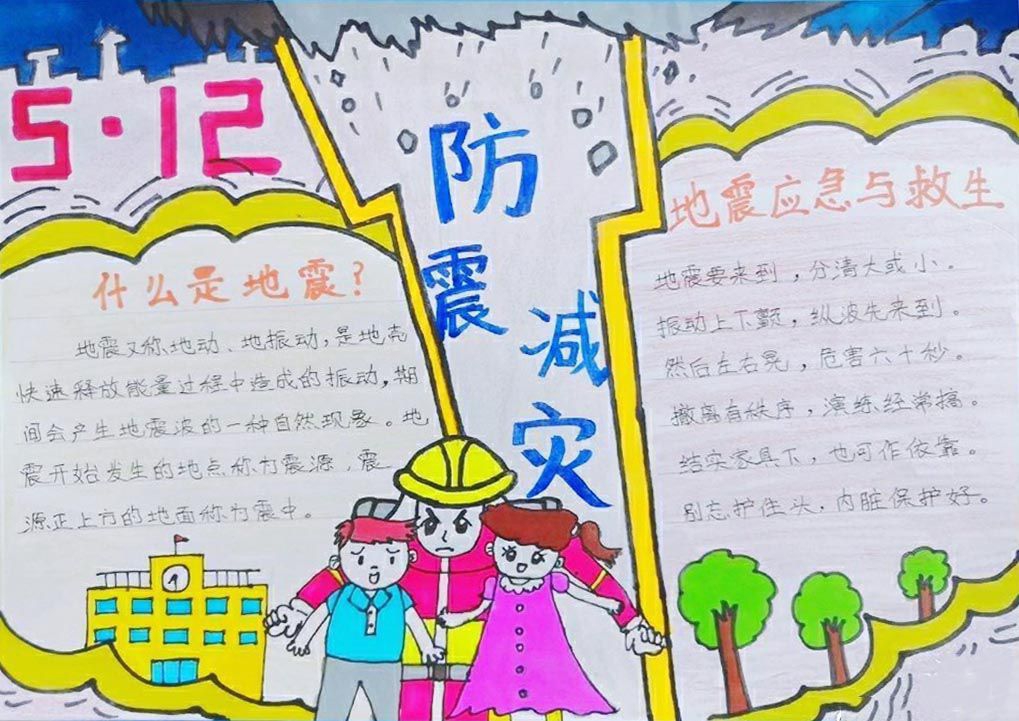 5·12
防震减灾
什么是地震?
地震又称地动、地振动,是地壳
快速释放能量过程中造成的振动,期
间会产生地震波的一种自然现象。地
震开始发生的地点称为震源,震
源正上方的地面称为震中。
地震应急与救生
地震要来到,分清大或小。
振动上下颤,纵波先来到。
然后左右晃,危害六十秒。
撤离有秩序,演练经常搞。
结实家具下,也可作依靠。
别忘护住头,内脏保护好。